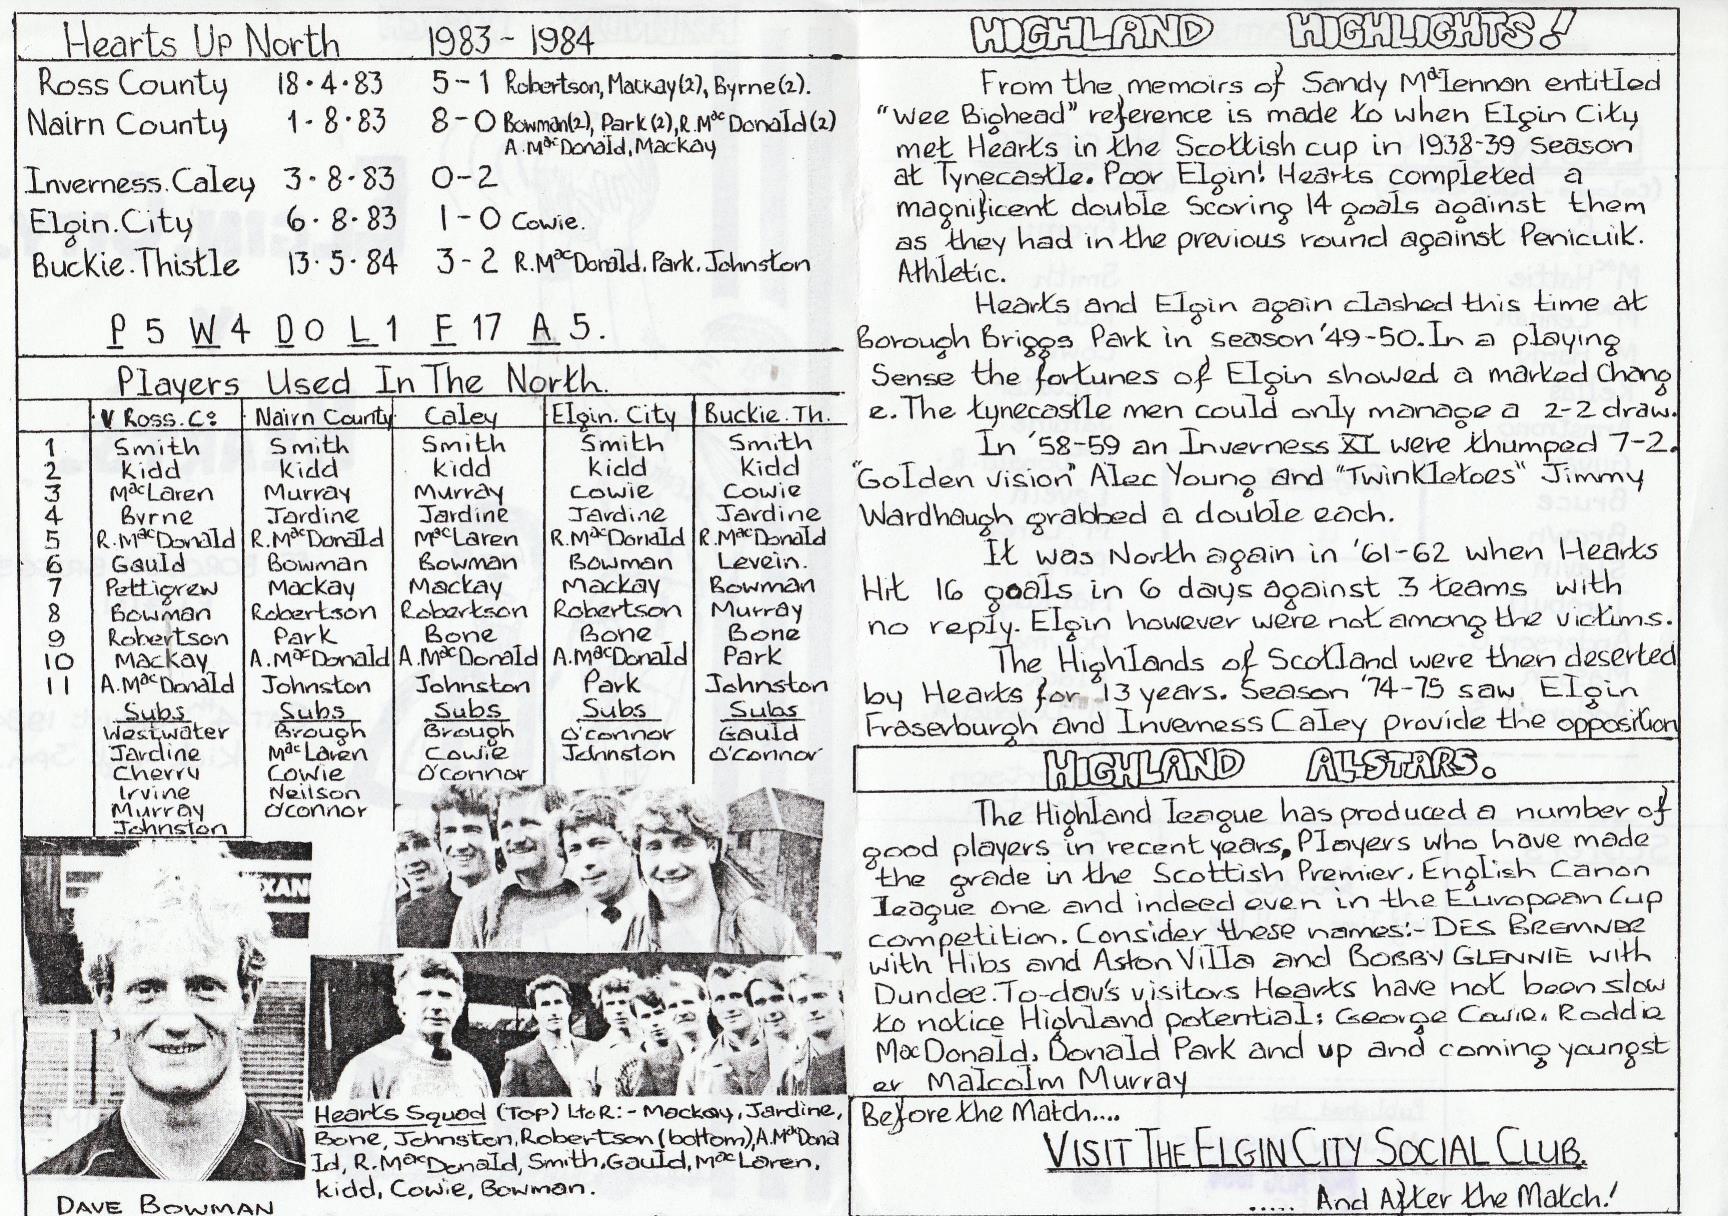 Hearts Up North 1983-1984
Ross County 18.4.83 5-1 Robertson, Mackay(2), Byrne(2).
Nairn County 1.8.83 8-0 Bowman(2), Park(2), R.MacDonald(2)
A.MacDonald, Mackay
Inverness.Caley 3.8.83 0-2
Elgin.City 6.8.83 1-0 Cowie.
Buckie.Thistle 13.5.84 3-2 R.MacDonald. Park. Johnston
P 5 W 4 D 0 L 1 F 17 A 5.
Players Used In The North.
V Ross.Co Nairn County Caley Elgin.City Buckie.Th.
1 Smith Smith Smith Smith Smith
2 Kidd Kidd Kidd Kidd Kidd
3 MacLaren Murray Murray Cowie Cowie
4 Byrne Jardine Jardine Jardine Jardine
5 R.MacDonald R.MacDonald MacLaren R.MacDonald R.MacDonald
6 Gauld Bowman Bowman Bowman Levein.
7 Pettigrew Mackay Mackay Mackay Bowman
8 Bowman Robertson Robertson Robertson Murray
9 Robertson Park Bone Bone Bone
10 Mackay A.MacDonald A.MacDonald A.MacDonald Park
11 A.MacDonald Johnston Johnston Park Johnston
Subs Subs Subs Subs Subs
Westwater Brough Brough O'connor Gauld
Jardine MacLaren Cowie Johnston O'connor
Cherry Cowie O'connor
Irvine Neilson
Murray O'connor
Johnston
DAVE BOWMAN
Hearts Squad (Top) L to R:- Mackay, Jardine,
Bone, Johnston, Robertson (bottom), A.MacDona
ld, R.MacDonald, Smith, Gauld, MacLaren,
Kidd, Cowie, Bowman.
HIGHLAND HIGHLIGHTS!
From the memoirs of Sandy Maclennan entitled
"Wee Bighead" reference is made to when Elgin City
met Hearts in the Scottish cup in 1938-39 season
at Tynecastle. Poor Elgin! Hearts completed a
magnificent double scoring 14 goals against them
as they had in the previous round against Penicuik.
Athletic.
Hearts and Elgin again clashed this time at
Borough Briggs Park in season '49-50. In a playing
Sense the fortunes of Elgin showed a marked chang
e. The tynecastle men could only manage a 2-2 draw.
In '58-59 an Inverness XI were thumped 7-2.
"Golden vision" Alec Young and "Twinkletoes" Jimmy
Wardhaugh grabbed a double each.
It was North again in '61-62 when Hearts
Hit 16 goals in 6 days against 3 teams with
no reply. Elgin however were not among the victims.
The Highlands of Scotland were then deserted
by Hearts for 13 years. Season '74-75 saw Elgin
Fraserburgh and Inverness Caley provide the opposition
HIGHLAND ALL-STARS.
The Highland league has produced a number of
good players in recent years. Players who have made
the grade in the Scottish Premier, English Canon
league one and indeed even in the European Cup
competition. Consider these names:- DES BREMNER
with Hibs and Aston Villa and BOBBY GLENNIE with
Dundee. To-day's visitors Hearts have not been slow
to notice Highland potential: George Cowie. Roddie
MacDonald, Donald Park and up and coming youngst
er Malcolm Murray
Before the Match....
VISIT THE ELGIN CITY SOCIAL CLUB.
..... And After the Match!